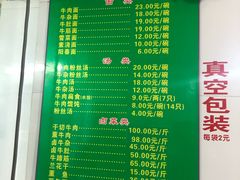 面类
牛肉面 23.00元/碗
牛杂面 22.00元/碗
牛肚面 22.00元/碗
牛筋面 22.00元/碗
雪菜面 12.00元/碗
素浇面 8.00元/碗
阳春面 6.00元/碗
汤类
牛肉粉丝汤 20.00元/碗
牛杂粉丝汤 18.00元/碗
牛肉汤 18.00元/碗
牛杂汤 12.00元/碗
牛肉锅贴 9.00元/两(7只)
牛肉馄饨 8.00元/碗(14只)
粉丝汤 4.00元/碗
卤菜类
干切牛肉 100.00元/斤
酱牛肉 98.00元/斤
卤牛肚 90.00元/斤
牛杂 45.00元/斤
牛蹄筋 65.00元/斤
兰花干 3.00元/块
真空包装
每袋2元